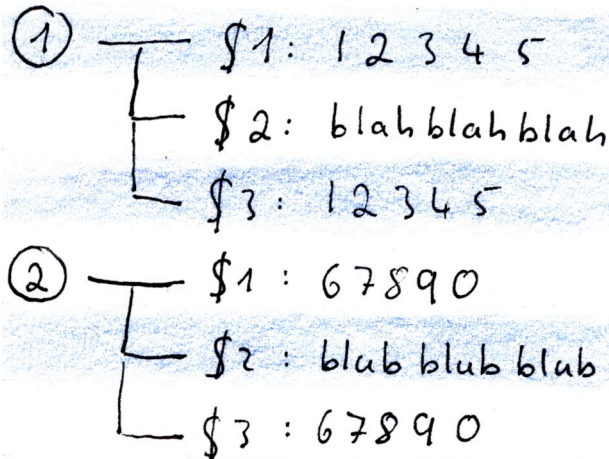 ① $1: 12345
$2: blah blah blah
$3: 12345
② $1: 67890
$2: blub blub blub
$3: 67890